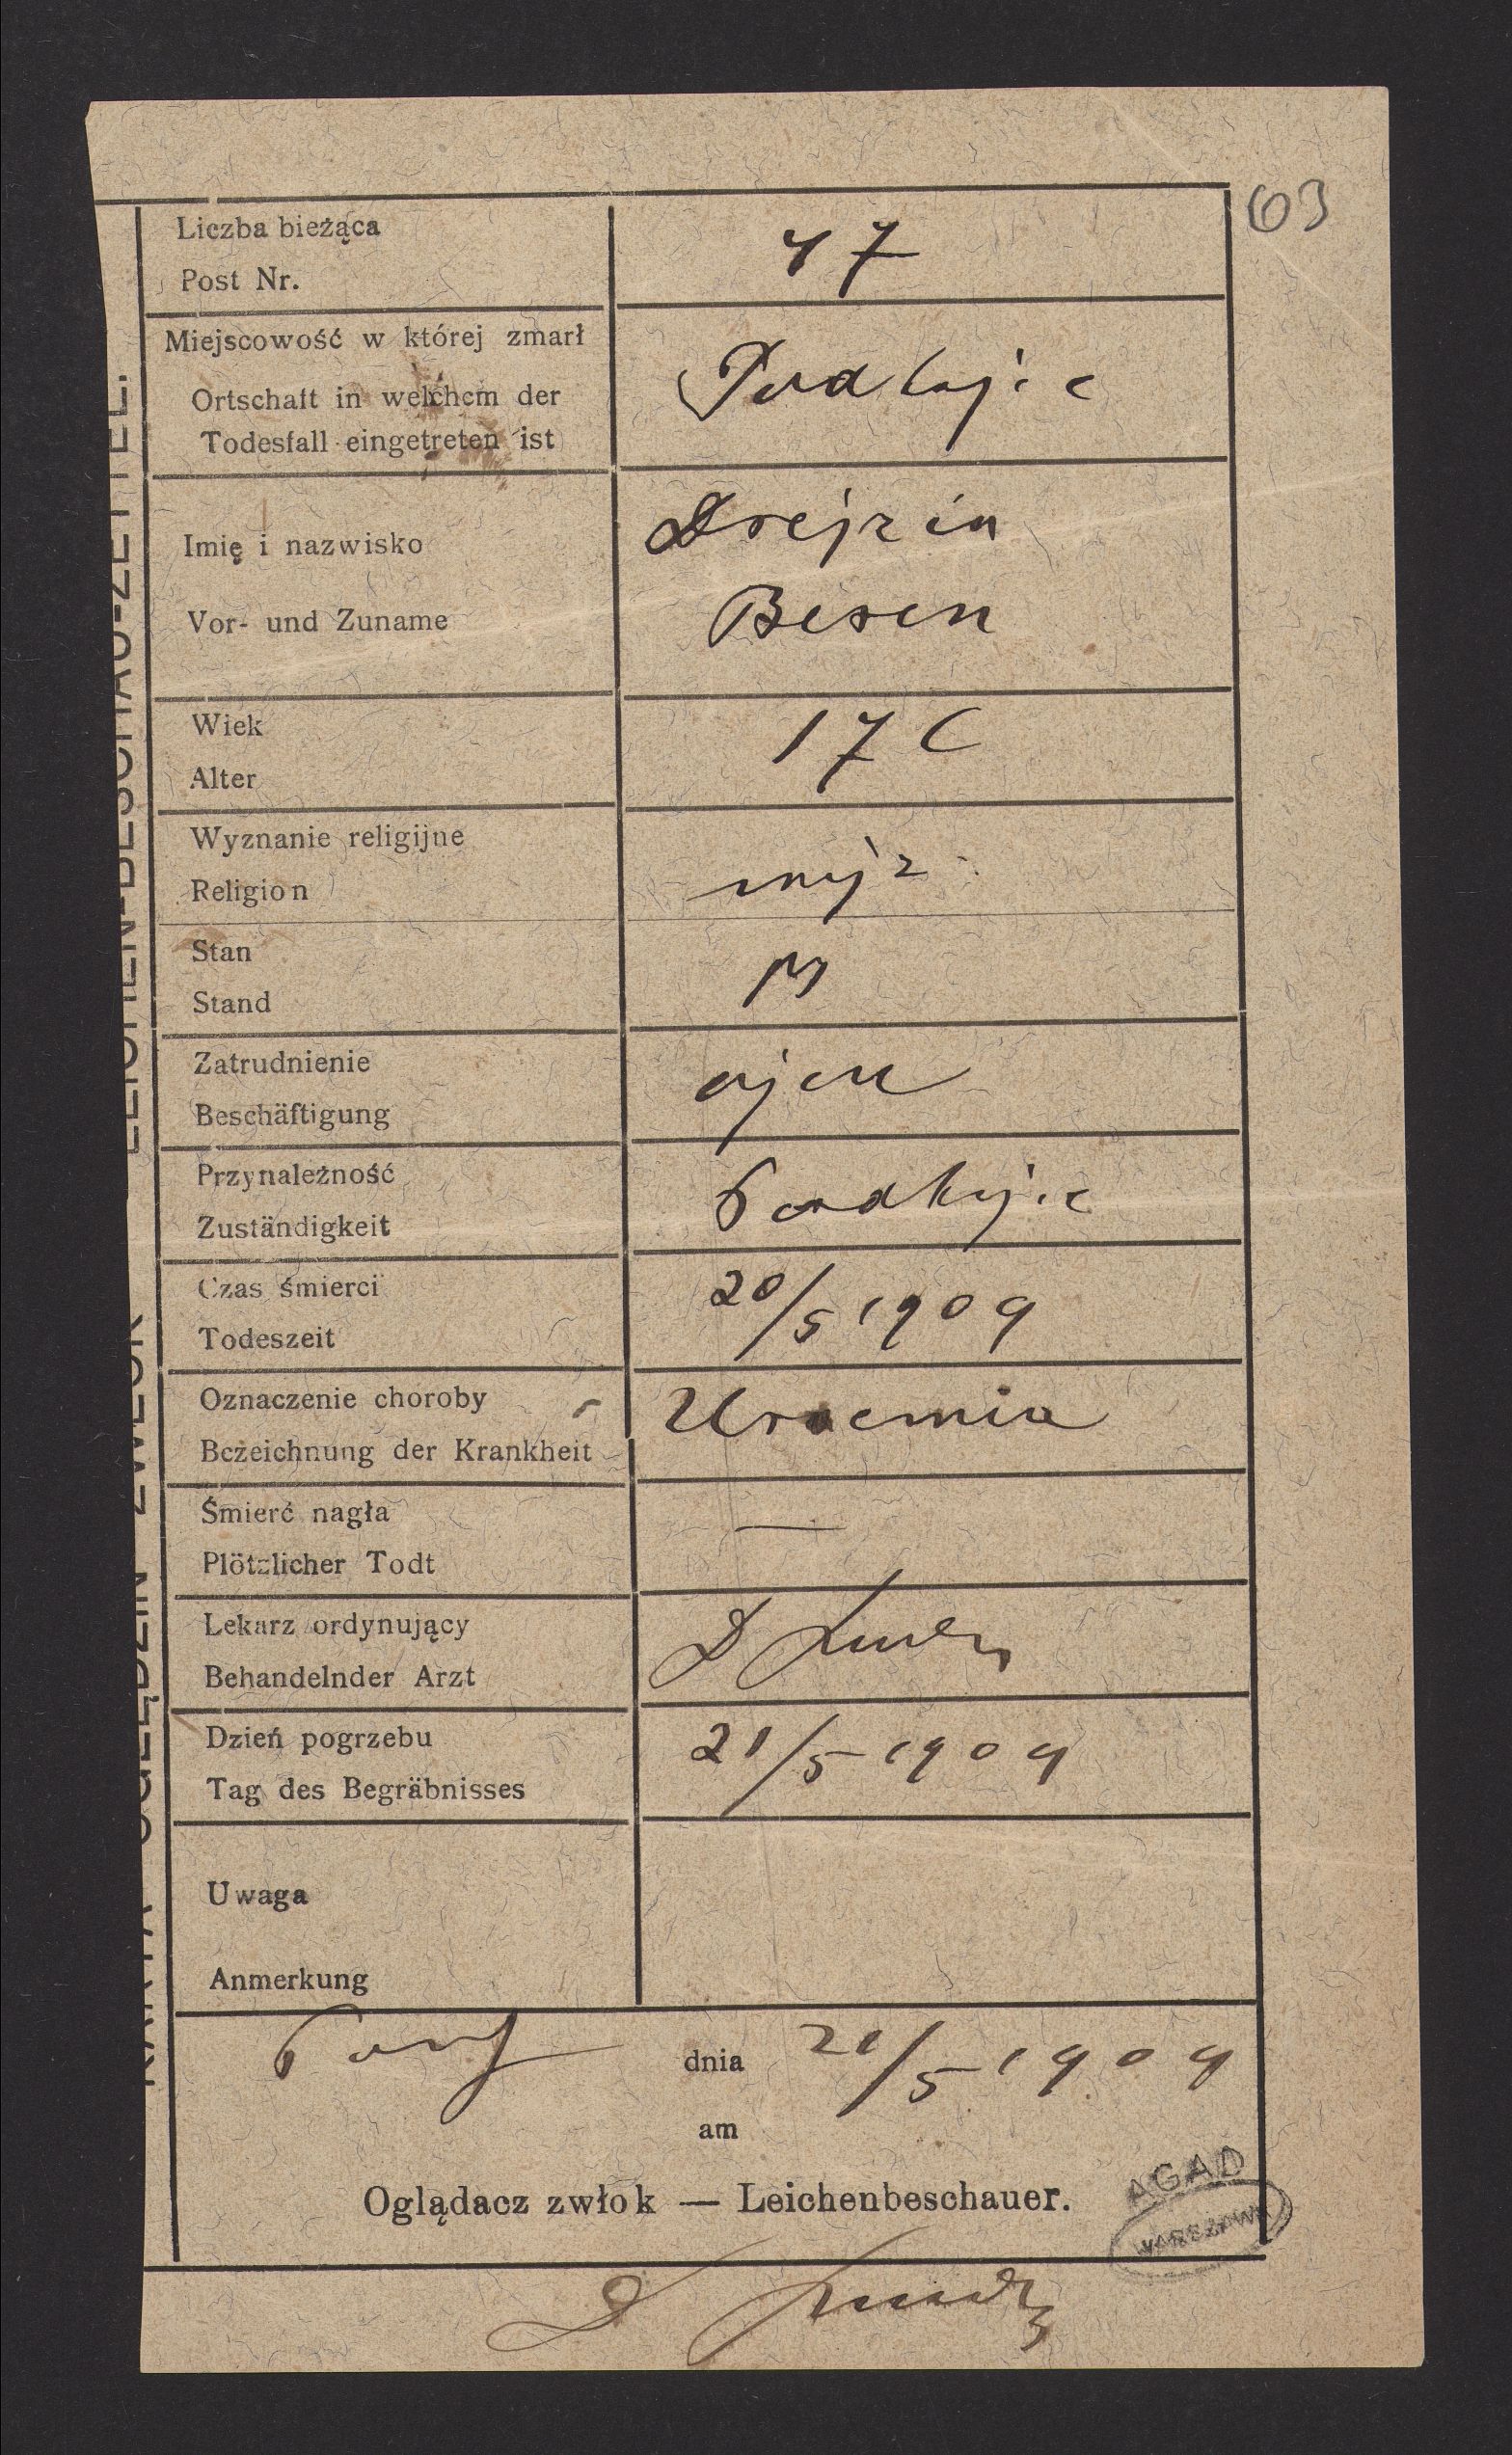 63
Liczba bieżąca
Post Nr.
47
Miejscowość w której zmarł
Ortschaft in welchem der
Todesfall eingetreten ist
Podhajce
Imię i nazwisko
Vor- und Zuname
Drejzin
Beren
Wiek
Alter
17
Wyznanie religijne
Religion
mojż
Stan
Stand
Zatrudnienie
Beschäftigung
ojca
Przynależność
Zuständigkeit
Podhajce
Czas śmierci
Todeszeit
20/5 1909
Oznaczenie choroby
Bezeichnung der Krankheit
Uraemia
Śmierć nagła
Plötzlicher Todt
—
Lekarz ordynujący
Behandelnder Arzt
D
Dzień pogrzebu
Tag des Begräbnisses
21/5 1909
Uwaga
Anmerkung
dnia 21/5 1909
am
Oglądacz zwłok — Leichenbeschauer.
D
AGAD
WARSZAWA